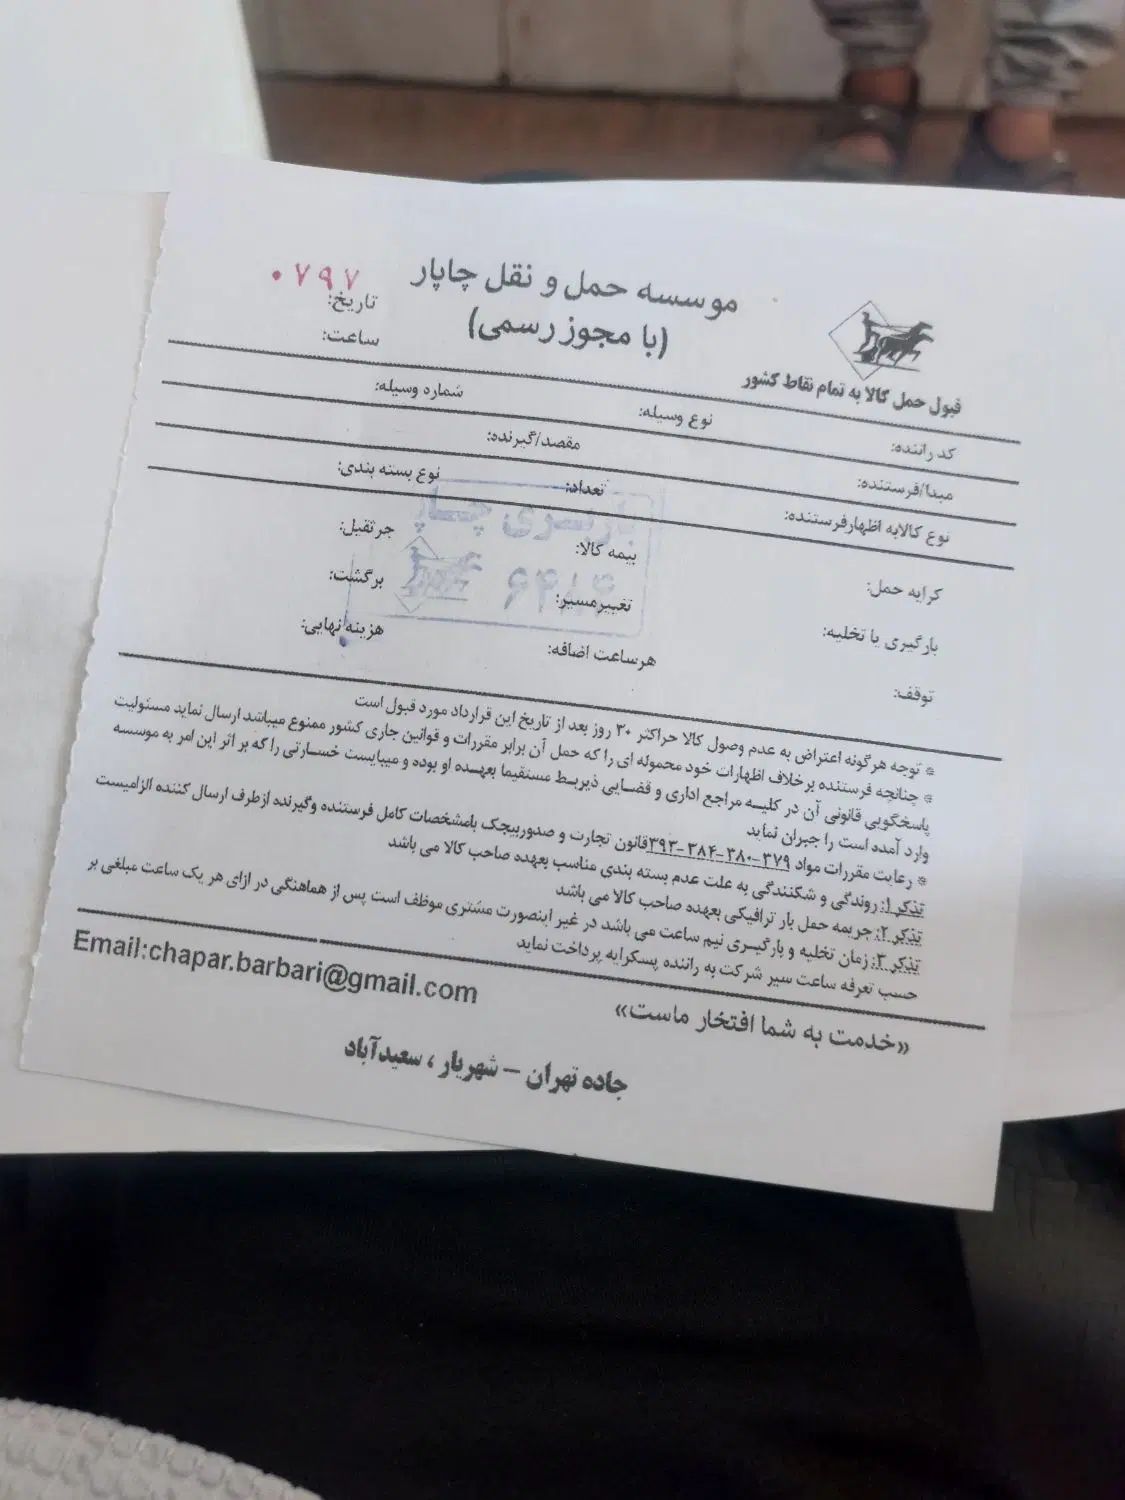 موسسه حمل و نقل چاپار
(با مجوز رسمی)
۰۷۹۷
تاریخ:
ساعت:
قبول حمل کالا به تمام نقاط کشور
کد راننده: نوع وسیله: شماره وسیله:
مبدا/فرستنده: مقصد/گیرنده:
نوع کالابه اظهارفرستنده: تعداد: نوع بسته بندی:
کرایه حمل: بیمه کالا: جرثقیل:
بارگیری یا تخلیه: تغییرمسیر: برگشت:
توقف: هرساعت اضافه: هزینه نهایی:
باربری چاپ
* توجه هرگونه اعتراض به عدم وصول کالا حداکثر ۳۰ روز بعد از تاریخ این قرارداد مورد قبول است
* چنانچه فرستنده برخلاف اظهارات خود محموله ای را که حمل آن برابر مقررات و قوانین جاری کشور ممنوع میباشد ارسال نماید مسئولیت
پاسخگویی قانونی آن در کلیه مراجع اداری و قضایی ذیربط مستقیما بعهده او بوده و میبایست خسارتی را که بر اثر این امر به موسسه
وارد آمده است را جبران نماید
* رعایت مقررات مواد ۳۷۹-۳۸۰-۳۸۴-۳۹۳قانون تجارت و صدوربیجک بامشخصات کامل فرستنده وگیرنده ازطرف ارسال کننده الزامیست
تذکر ۱: روندگی و شکنندگی به علت عدم بسته بندی مناسب بعهده صاحب کالا می باشد
تذکر ۲: جریمه حمل بار ترافیکی بعهده صاحب کالا می باشد
تذکر ۳: زمان تخلیه و بارگیری نیم ساعت می باشد در غیر اینصورت مشتری موظف است پس از هماهنگی در ازای هر یک ساعت مبلغی بر
حسب تعرفه ساعت سیر شرکت به راننده پسکرایه پرداخت نماید
«خدمت به شما افتخار ماست»
Email:chapar.barbari@gmail.com
جاده تهران – شهریار ، سعیدآباد